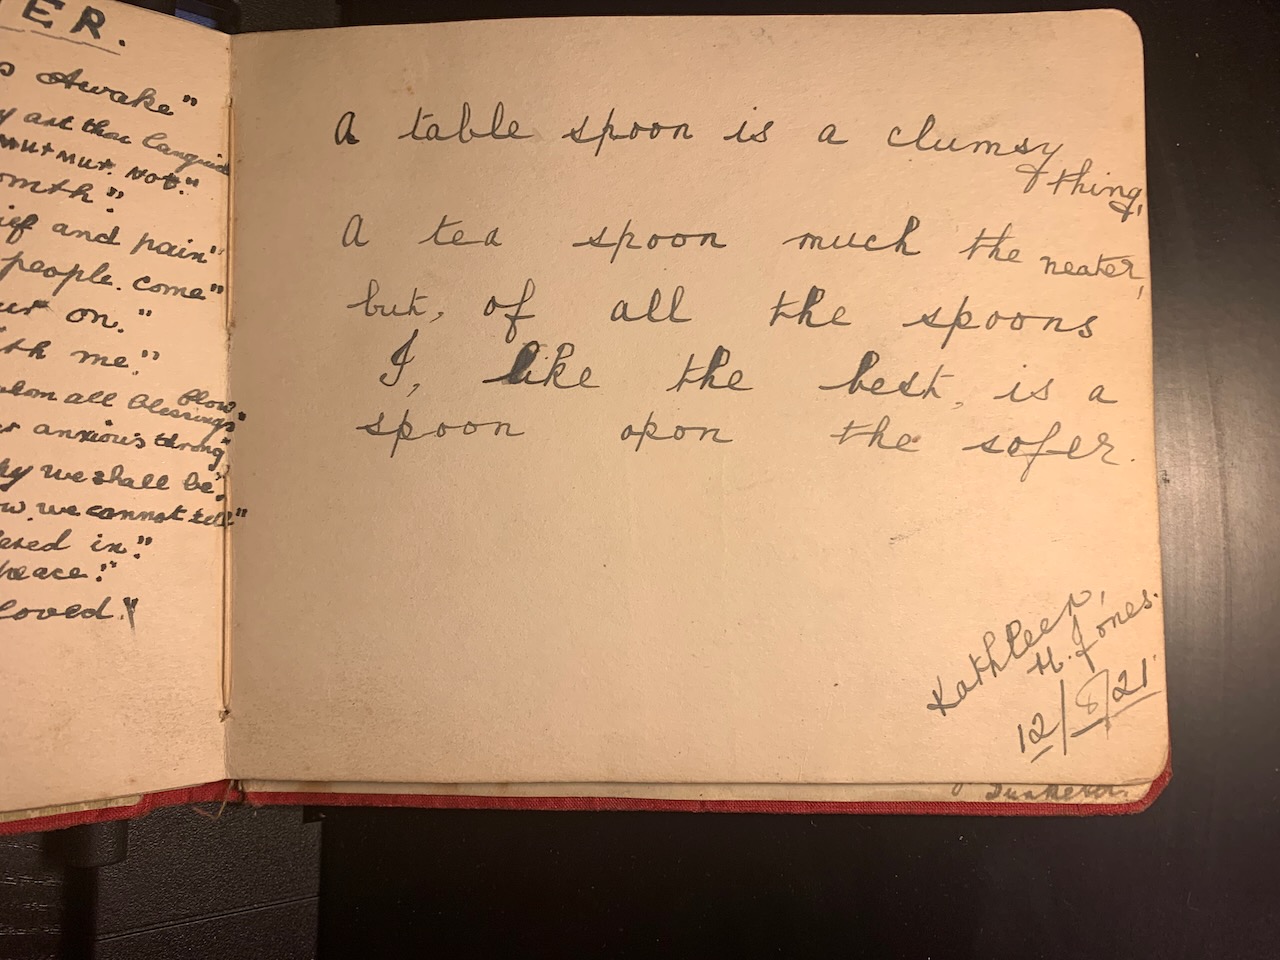 ER.
Awake"
art thou languid
murmur not."
and pain"
people come"
on."
me."
all blessings flow"
anxious throng"
we shall be."
we cannot tell"
in."
peace."
loved."
A table spoon is a clumsy
thing,
A tea spoon much the neater,
but, of all the spoons
I, like the best, is a
spoon opon the sofer.
Kathleen,
H. Jones.
12/8/21.